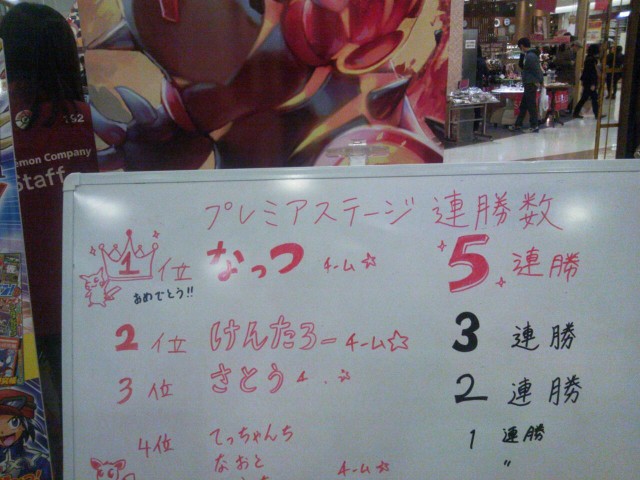 192
emon Company
Staff
プレミアステージ 連勝数
1位 なっつ チーム☆ 5 連勝
おめでとう!!
2位 けんたろー チーム☆ 3 連勝
3位 さとう チ 2 連勝
4位 てっちゃんち 1 連勝
なおと チーム☆ 〃